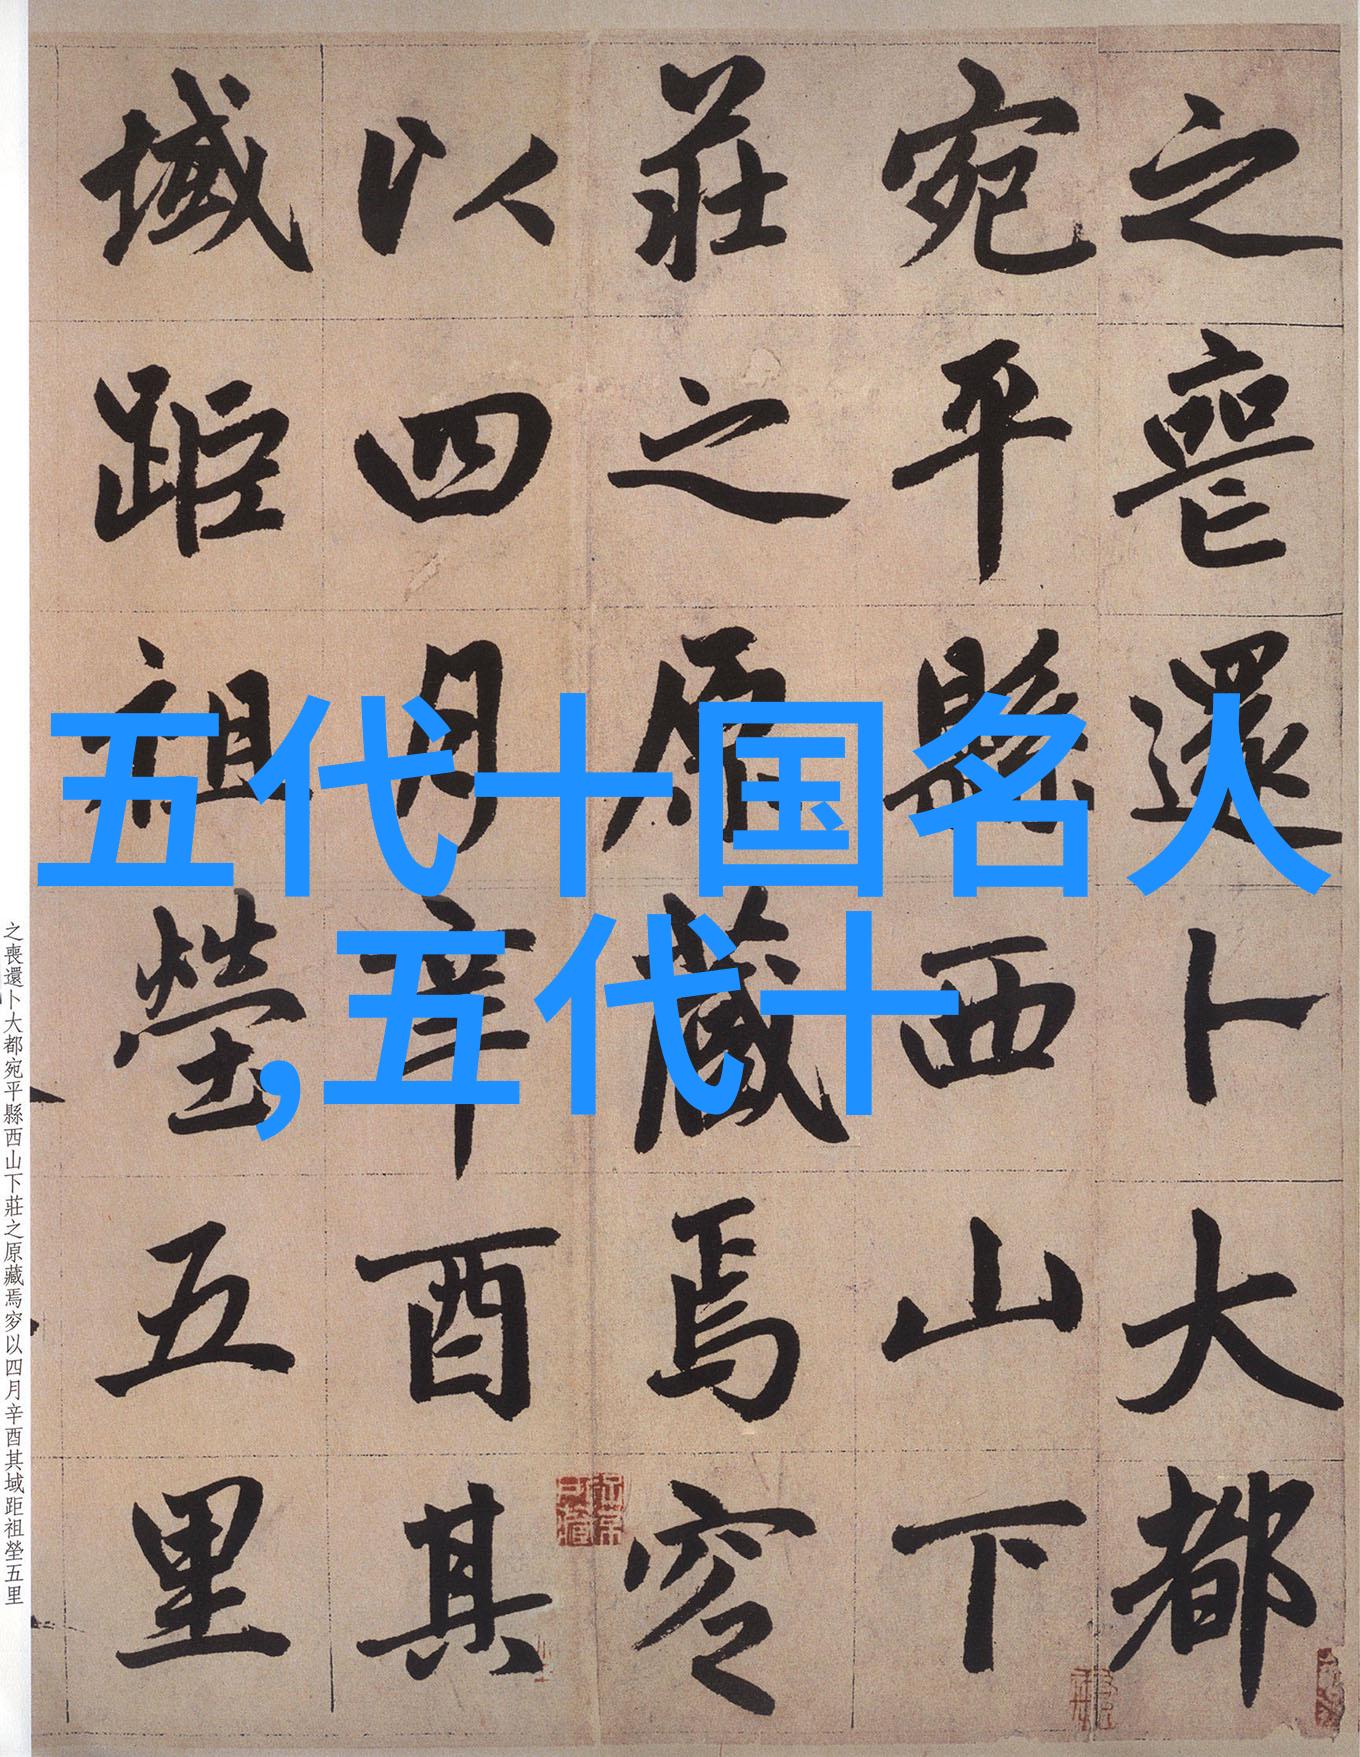 之喪還卜大都
宛平縣西山下
莊之原藏焉穸
以四月辛酉其
域距祖塋五里
五代十国名人
,五代十
之喪還卜大都宛平縣西山下莊之原藏焉穸以四月辛酉其域距祖塋五里